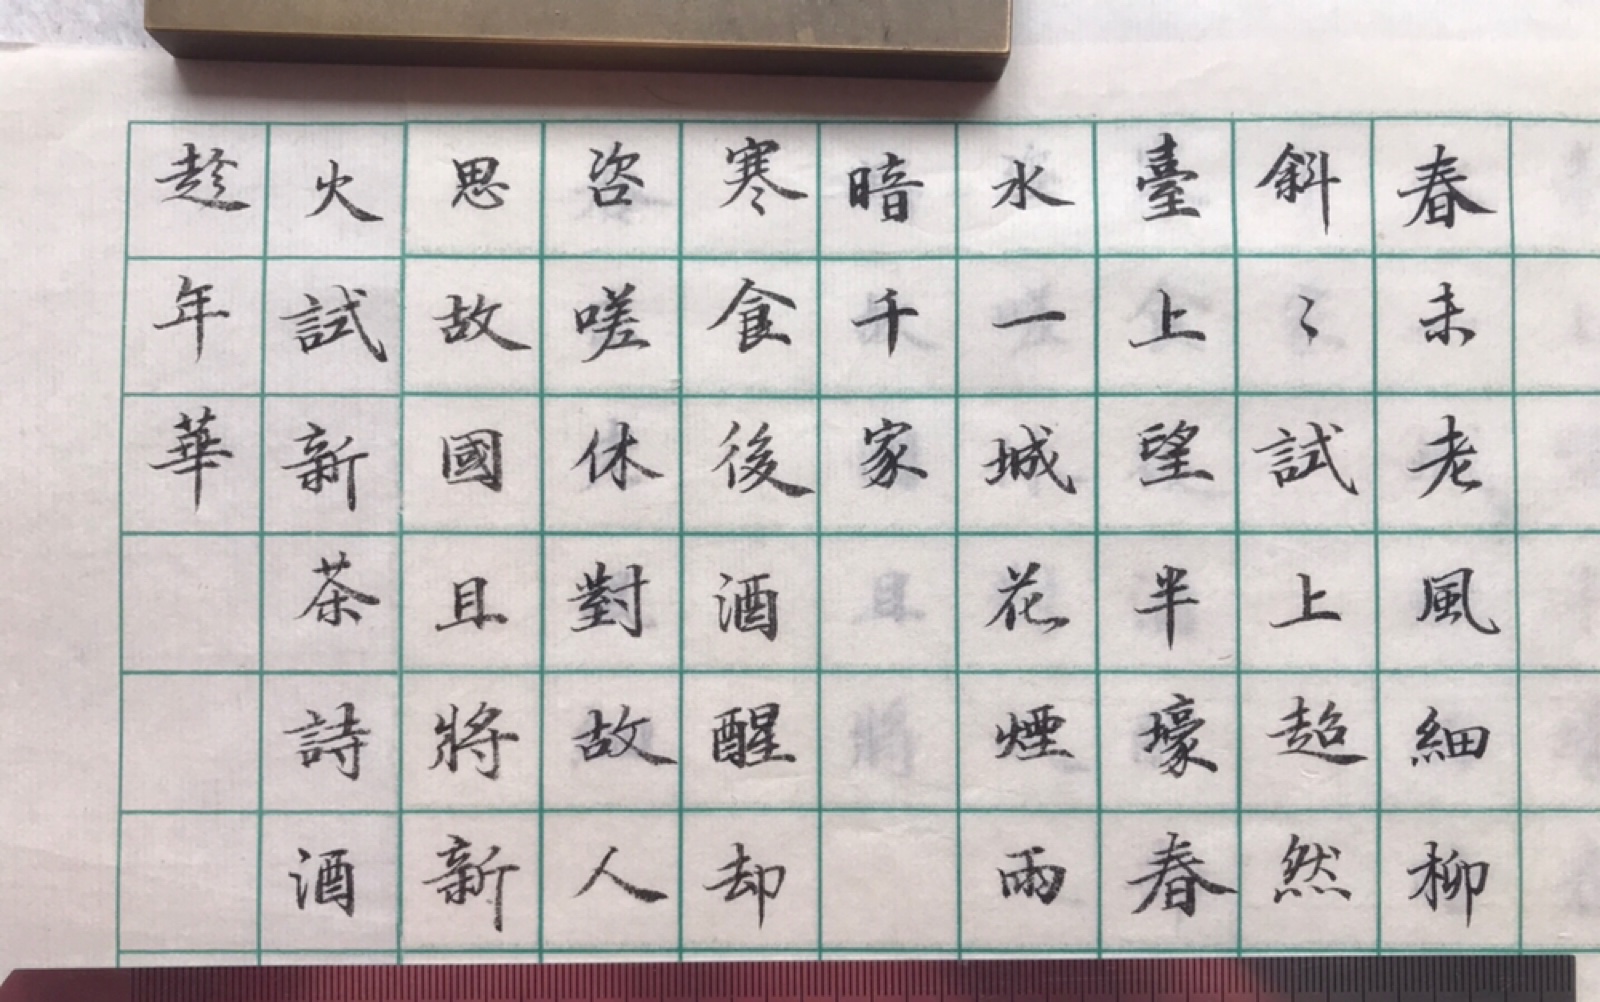 春未老風細柳
斜〻試上超然
臺上望半壕春
水一城花煙雨
暗千家
寒食後酒醒却
咨嗟休對故人
思故國且將新
火試新茶詩酒
趁年華